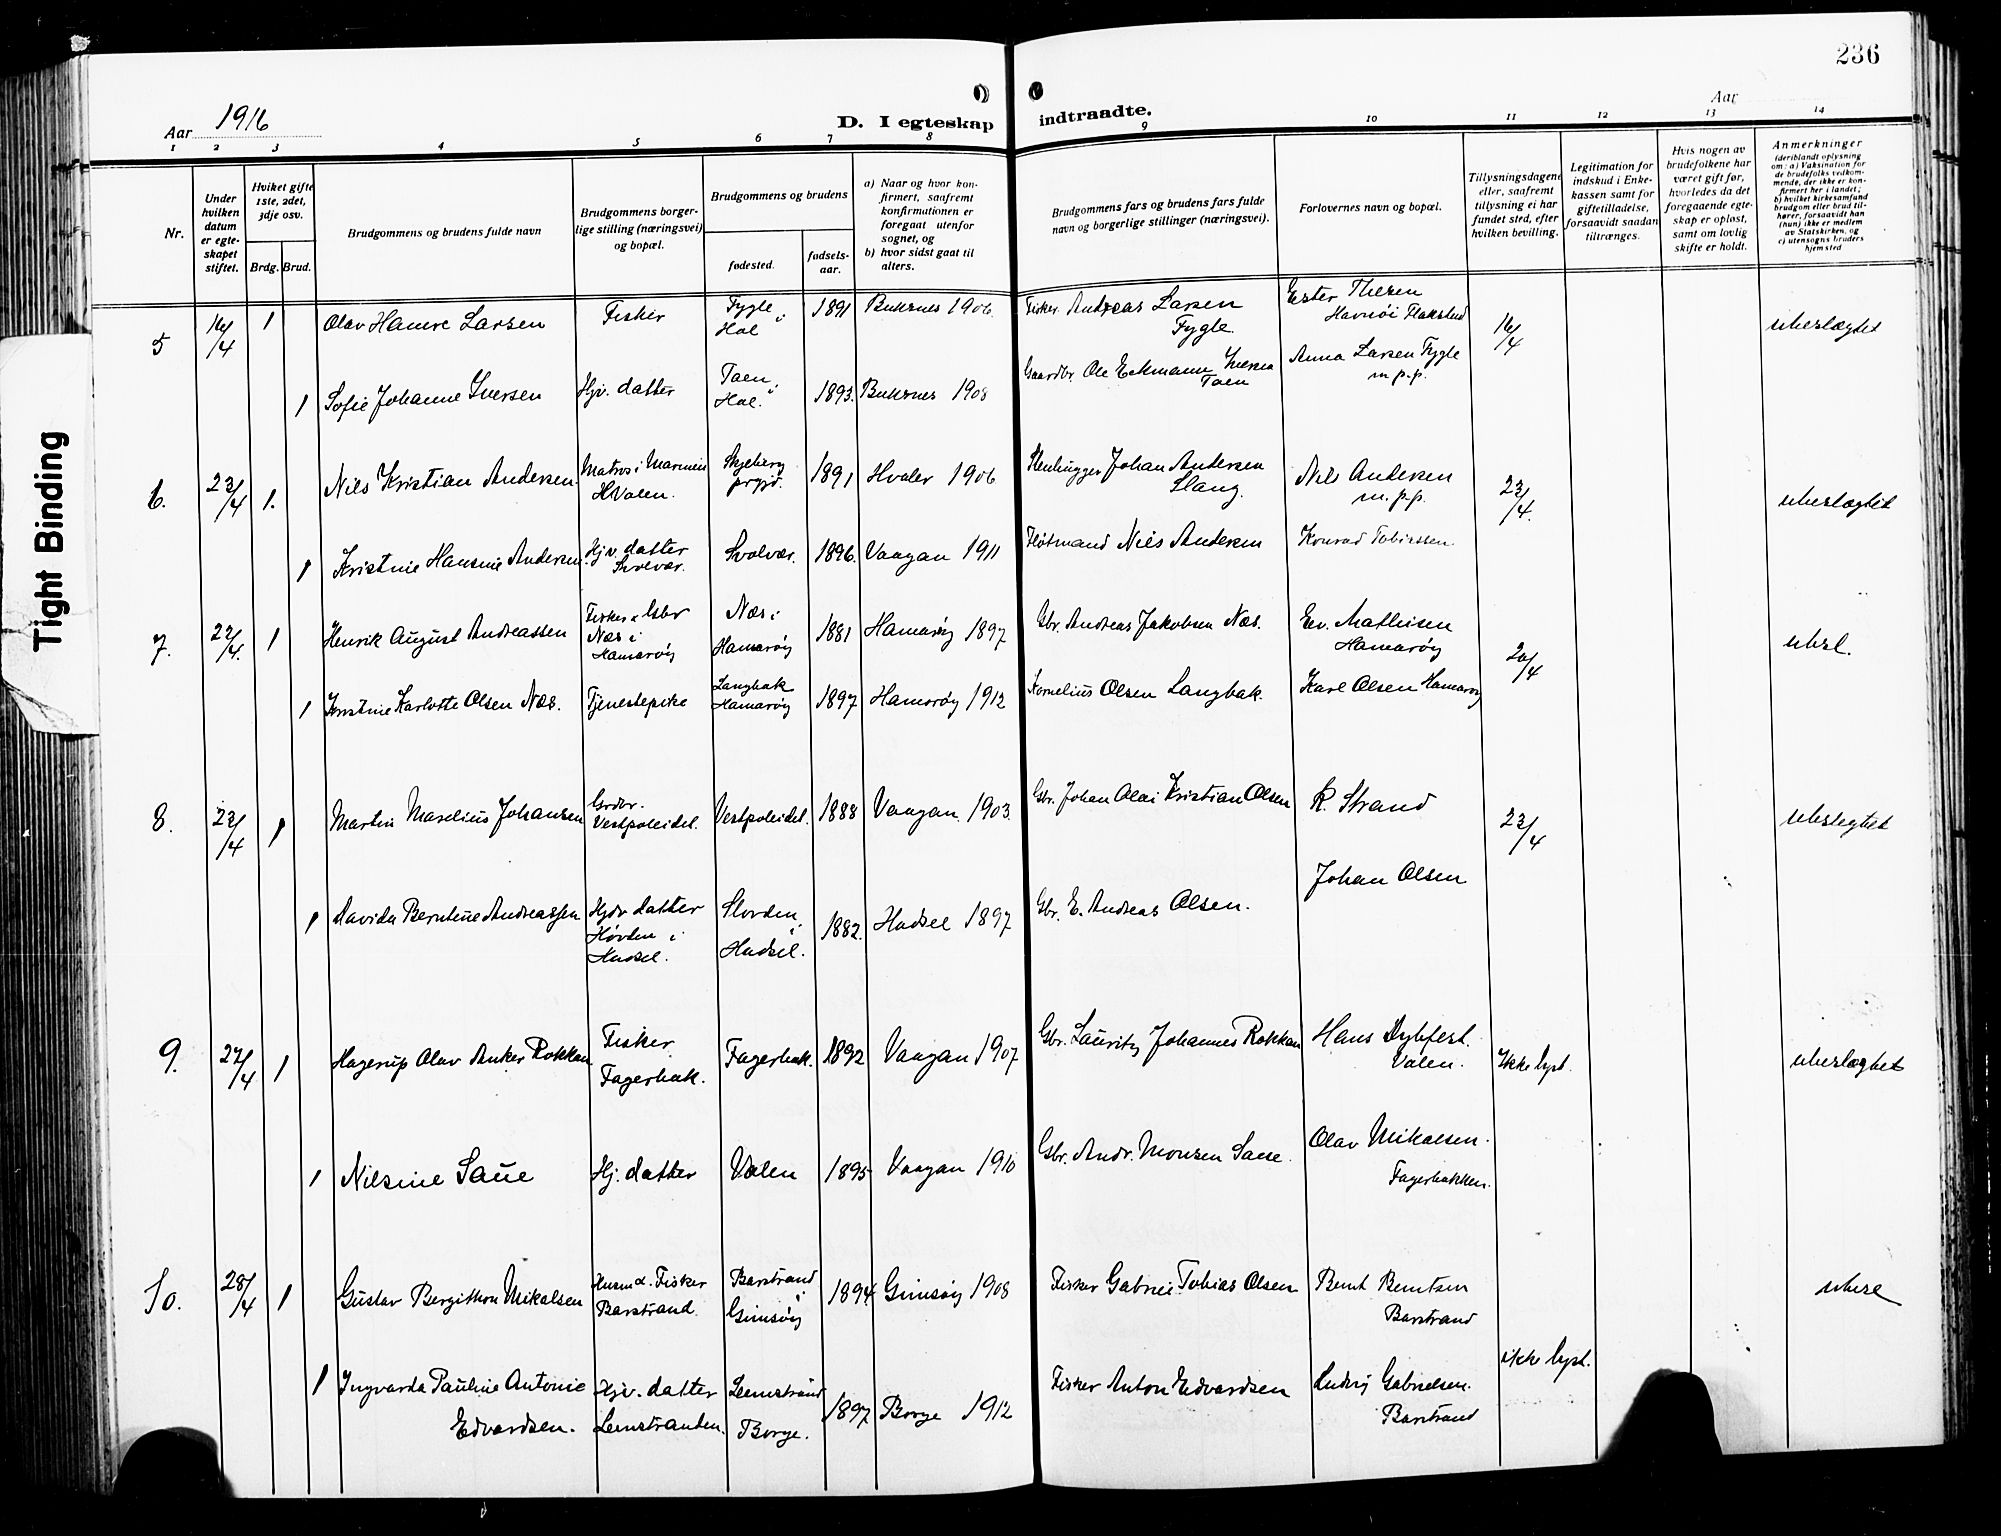 236
Aar 1916
D. I egteskap
indtraadte.
Aar
1 2 3 4 5 6 7 8 9 10 11 12 13 14
Nr.
Under hvilken datum er egteskapet stiftet.
Hvilket gifte 1ste, 2det, 3dje osv.
Brdg. Brud.
Brudgommens og brudens fulde navn
Brudgommens borgerlige stilling (næringsvei) og bopæl.
Brudgommens og brudens
fødested.
fødselsaar.
a) Naar og hvor konfirmert, saafremt konfirmationen er foregaat utenfor sognet, og
b) hvor sidst gaat til alters.
Brudgommens fars og brudens fars fulde navn og borgerlige stillinger (næringsvei).
Forlovernes navn og bopæl.
Tillysningsdagene eller, saafremt tillysning ei har fundet sted, efter hvilken bevilling.
Legitimation for indskud i Enkekassen samt for giftetilladelse, forsaavidt saadan tiltrænges.
Hvis nogen av brudefolkene har været gift før, hvorledes da det foregaaende egteskap er opløst, samt om lovlig skifte er holdt.
Anmerkninger
(deriblandt oplysning om: a) Vaksination for de brudefolks vedkommende, der ikke er konfirmert her i landet; b) hvilket kirkesamfund brudgom eller brud tilhører, forsaavidt han (hun) ikke er medlem av Statskirken, og c) utensogns bruders hjemsted
5 16/4 1 Olav Hamre Larsen Fisker Fygle i Hol 1891 Buksnes 1906. Fisker Andreas Larsen Fygle. Ester Thesen Havnöi Flakstad 16/4 ubeslægtet
1 Sofie Johanne Iversen Hjv. datter Taen i Hol. 1893. Buksnes 1908 Gaardbr. Ole Eckmann Iversen Taen Anna Larsen Fygle m.p.p.
6. 23/4 1. Nils Kristian Andersen. Matros i Marinen Hvalen. Skjeberg prgjd. 1891 Hvaler 1906 Stenhugger Johan Andersen Slang. Nils Andersen m.p.p. 23/4. ubeslægtet
1 Kristine Hansine Andersen Hjv. datter Svolvær. Svolvær. 1896. Vaagan 1911 Nils Andersen Konrad Tobiassen
7. 22/4. 1 Henrik August Andreassen Fisker & Gbr Næs i Hamarøy Næs i Hamarøy 1881 Hamarøy 1897 Gbr. Andreas Jakobsen Næs. Ev. Mathisen Hamarøy 20/4 ubesl.
1 Kristine Karlotte Olsen Næs. Tjenestepike Langbak Hamarøy 1897 Hamarøy 1912 Kornelius Olsen Langbak. Karl Olsen Hamarøy
8. 23/4 1 Martin Marelius Johansen Grdbr. Vestpoleidet. Vestpoleidet. 1888 Vaagan 1903. Gbr. Johan Olai Kristian Olsen R. Strand 23/4 ubeslegtet
1 Davida Berntine Andreassen Hjdv datter Høvden i Hadsel. Hadsel. 1882. Hadsel 1897 Gbr. E. Andreas Olsen. Johan Olsen
9. 27/4 1 Hagerup Olav Anker Rokkan Fisker Fagerbak. Fagerbak. 1892 Vaagan 1907 Gbr. Lauritz Johannes Rokkan Hans Dybfest. Valen. Ikke lyst. ubeslægtet
1 Nilsine Saue Hj. datter Valen 1895 Vaagan 1910 Gbr. Andr. Monsen Saue. Olav Mikalsen. Fagerbakken.
10. 28/4 1 Gustav Bergithon Mikalsen Husm. & Fisker Barstrand. Barstrand i Gimsøy 1894 Gimsøy 1908 Fisker Gabriel Tobias Olsen Bernt Berntsen Barstrand ubesl
1 Ingvarda Pauline Antonie Edvardsen. Hjv. datter Lemstranden. Lemstrand Borge. 1897 Borge 1912 Fisker Anton Edvardsen Ludvig Gabrielsen. Barstrand ikke lyst.
Tight Binding